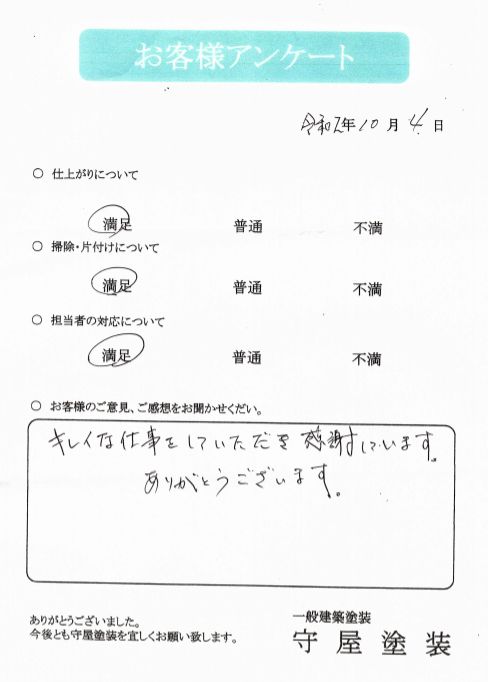 お客様アンケート
令和2年10月4日
○ 仕上がりについて
満足 普通 不満
○ 掃除・片付けについて
満足 普通 不満
○ 担当者の対応について
満足 普通 不満
○ お客様のご意見、ご感想をお聞かせくだい。
キレイな仕事をしていただき感謝しています。
ありがとうございます。
ありがとうございました。
今後とも守屋塗装を宜しくお願い致します。
一般建築塗装
守屋塗装